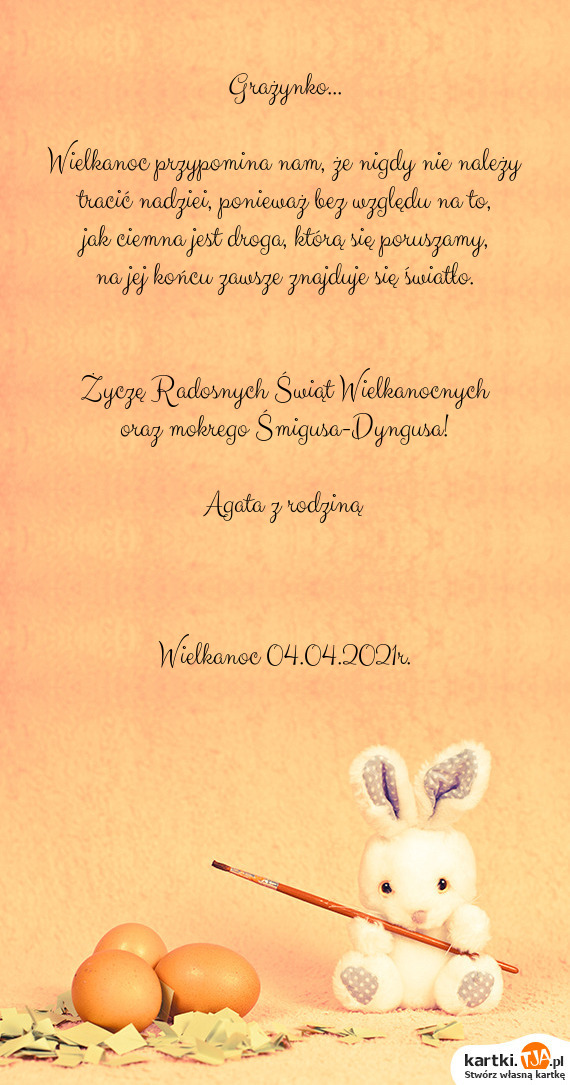 Grażynko...
Wielkanoc przypomina nam, że nigdy nie należy
tracić nadziei, ponieważ bez względu na to,
jak ciemna jest droga, którą się poruszamy,
na jej końcu zawsze znajduje się światło.
Życzę Radosnych Świąt Wielkanocnych
oraz mokrego Śmigusa-Dyngusa!
Agata z rodziną
Wielkanoc 04.04.2021r.
kartki.TJA.pl
Stwórz własną kartkę